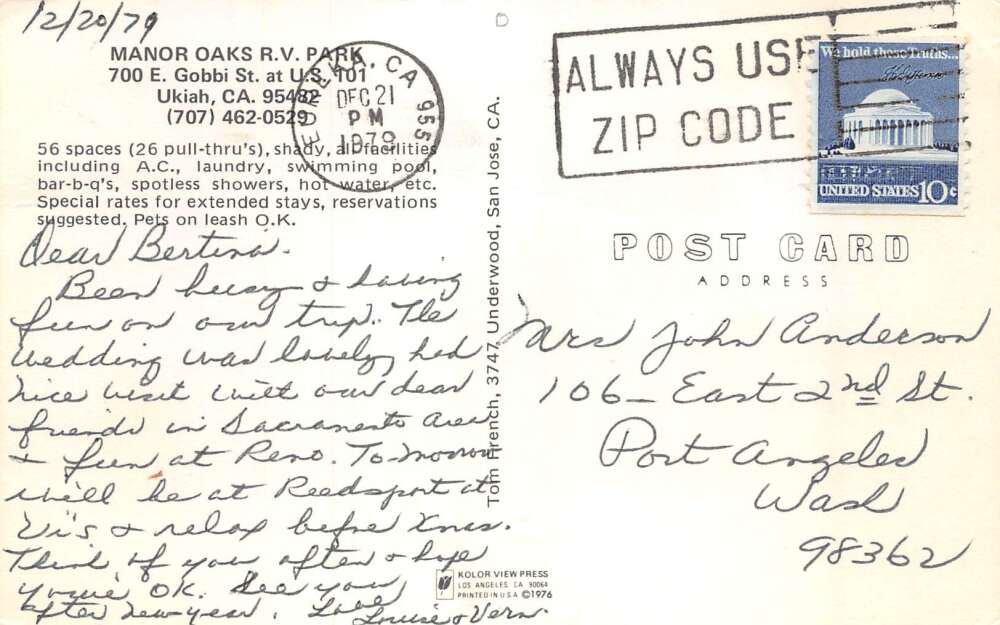 12/20/79
MANOR OAKS R.V. PARK
700 E. Gobbi St. at U.S. 101
Ukiah, CA. 95482
(707) 462-0529
56 spaces (26 pull-thru's), shady, all facilities
including A.C., laundry, swimming pool,
bar-b-q's, spotless showers, hot water, etc.
Special rates for extended stays, reservations
suggested. Pets on leash O.K.
Dear Bertina.
Been busy & having
fun on our trip. The
wedding was lovely, had
nice visit with our dear
friends in Sacramento area
& fun at Reno. To-morrow
will be at Reedsport at
Vi's & relax before Xmas.
Think of you often & hope
you're OK. See you
after new-year. Love
Louise & Vern.
Tom French, 3747 Underwood, San Jose, CA.
KOLOR VIEW PRESS
LOS ANGELES CA 90064
PRINTED IN U.S.A. ©1976
EUREKA, CA 955
DEC 21
PM
1979
ALWAYS USE
ZIP CODE
We hold these Truths...
UNITED STATES 10c
POST CARD
ADDRESS
Mrs John Anderson
106 - East 2nd St.
Port Angeles
Wash
98362